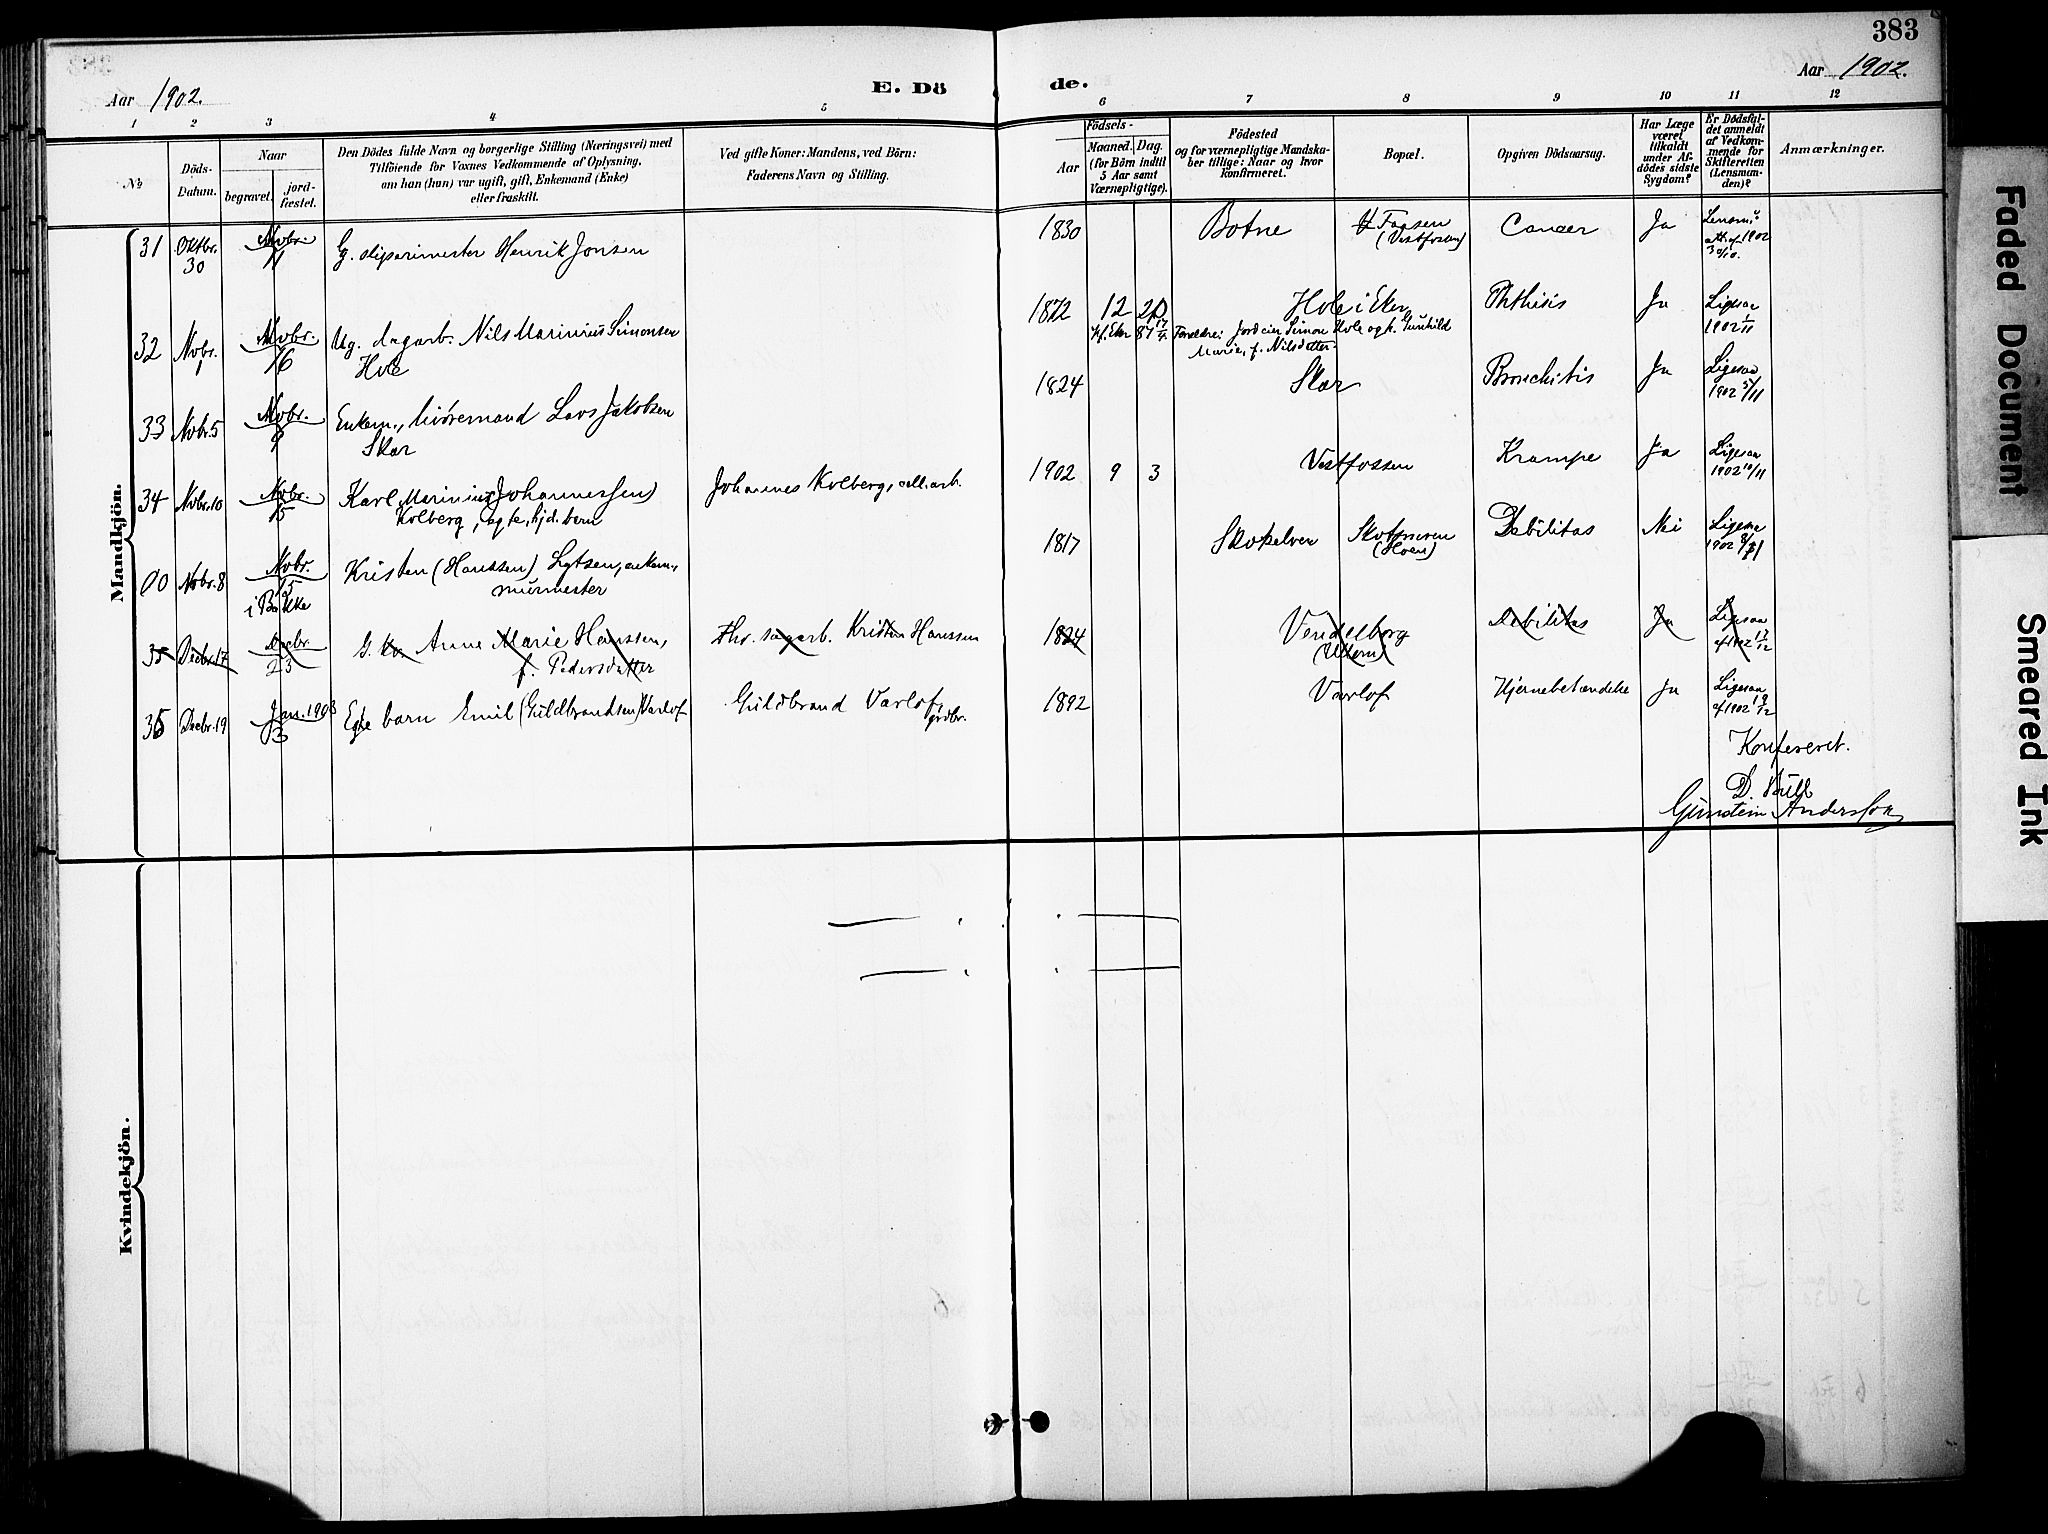 383
Aar 1902.
E. Dö de.
Aar 1902.
1 2 3 4 5 6 7 8 9 10 11 12
№
Döds-Datum.
Naar
begravet.
jord-fæstet.
Den Dödes fulde Navn og borgerlige Stilling (Næringsvei) med
Tilföiende for Voxnes Vedkommende af Oplysning,
om han (hun) var ugift, gift, Enkemand (Enke)
eller fraskilt.
Ved gifte Koner: Mandens, ved Börn:
Faderens Navn og Stilling.
Födsels-
Aar
Maaned. Dag.
(for Börn indtil
5 Aar samt
Værnepligtige).
Födested
og for værnepligtige Mandska-
ber tillige: Naar og hvor
Konfirmeret.
Bopæl.
Opgiven Dödsaarsag.
Har Læge
været
tilkaldt
under Af-
dödes sidste
Sygdom?
Er Dödsfal-
det anmeldt
af Vedkom-
mende for
Skifteretten
(Lensman-
den)?
Anmærkninger.
Mandkjön.
31 Oktbr. 30 Novbr. 11 G. sliperimester Henrik Jonsen 1830 Botne Fossen (Vestfossen) Cancer Ja 1902 30/10.
32 Novbr. 1 Novbr. 16 Ug. dagarb. Nils Marinius Simonsen
Hole 1872 12 20 Hole i Eker Phthisis Ja Ligesaa 1902 1/11
Kf. Eker 87 17/4. Forældre: Jordeier Simon Hole og k. Gunhild
Marie, f. Nilsdatter.
33 Novbr. 5 Novbr. 9 Enkem., livöremand Lars Jakobsen
Skar 1824 Skar Bronchitis Ja Ligesaa 1902 5/11
34 Novbr. 10 Novbr. 15 Karl Marinius (Johannessen)
Kolberg, ægte, hjd. barn Johannes Kolberg, cell. arb. 1902 9 3 Vestfossen Krampe Ja Ligesaa 1902 10/11
00 Novbr. 8 Novbr. 15 i Bakke Kristen (Hanssen) Lytsen, enkem.,
murmester 1817 Skoger Debilitas Nei Ligesaa 1902 8/11
35 Decbr. 17 Decbr 23 G. kv. Anne Marie Hanssen,
f. Pedersdatter Thv. sagarb. Kristen Hanssen 1824 Vendelborg Debilitas Ja Ligesaa af 1902 17/12
35 Decbr. 19 Jan. 1903 3 Egte barn Emil (Guldbrandsen) Varlof Guldbrand Varlof, grdbr. 1892 Varlof Hjernebetændelse Ja Ligesaa af 1902 19/12
Konfereret.
D. Bull
Gunstein Anderssen
Kvindekjön.
Faded Document
Smeared Ink